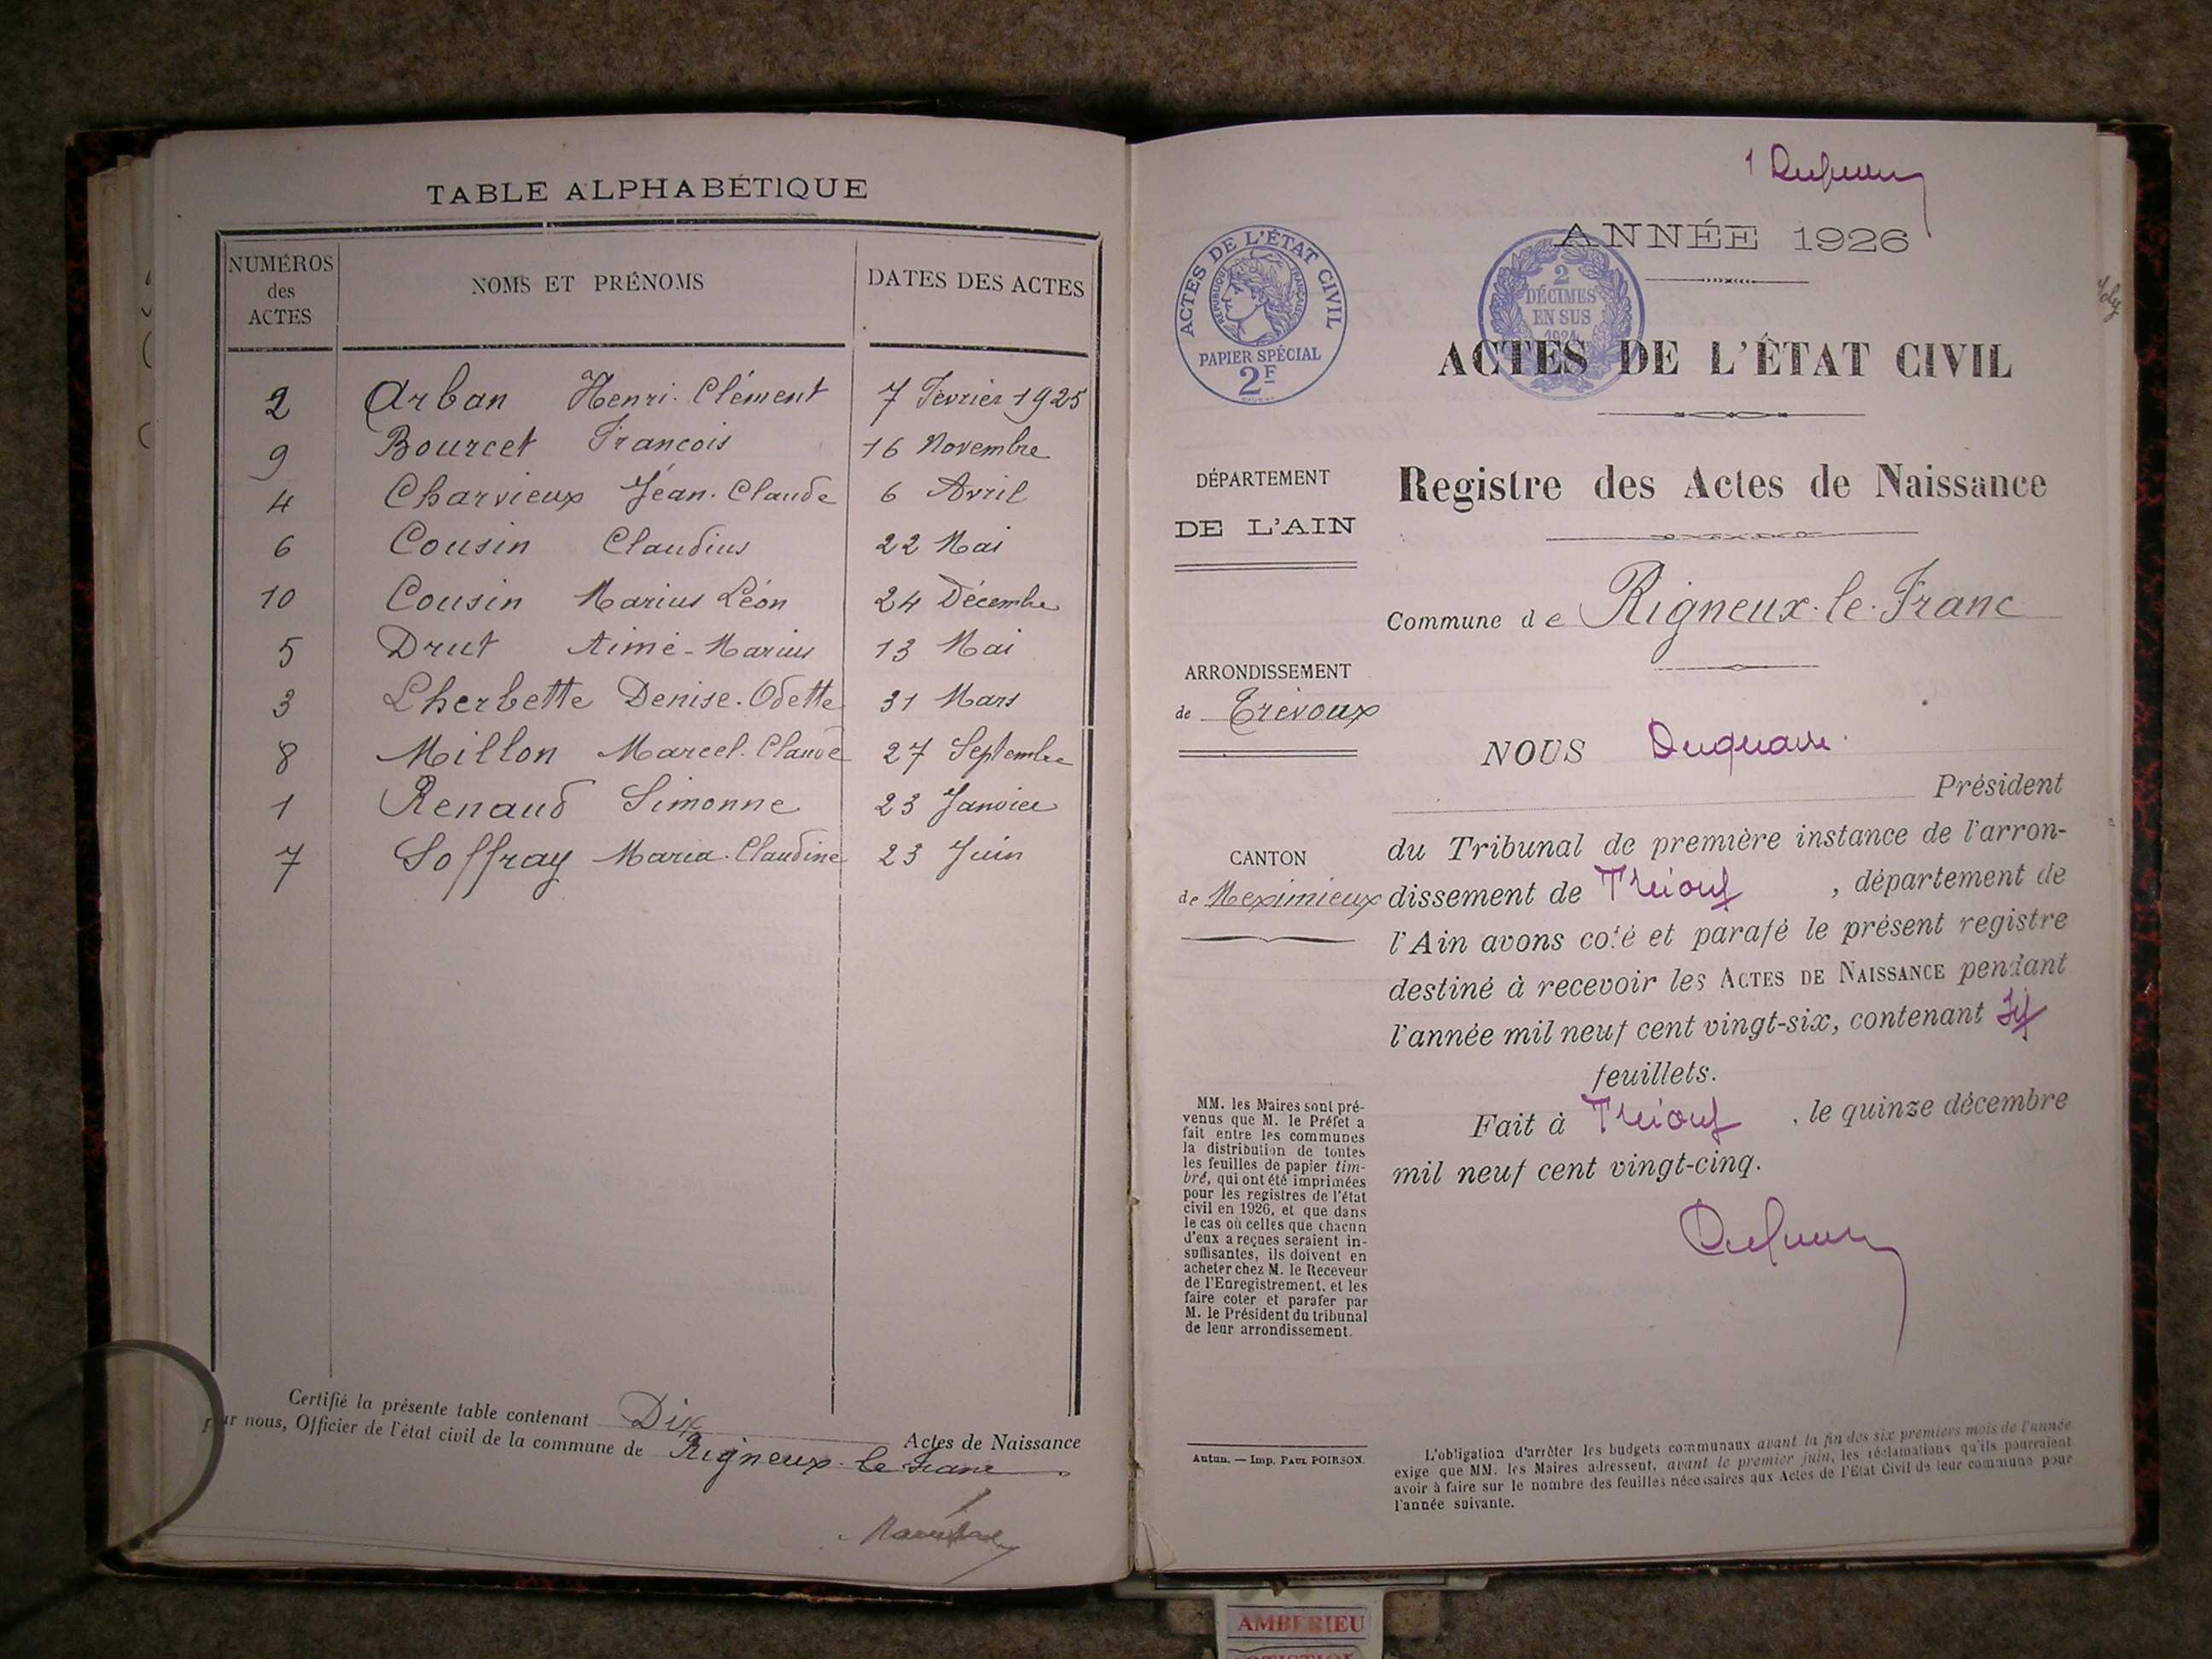 TABLE ALPHABÉTIQUE
NUMÉROS
des
ACTES
NOMS ET PRÉNOMS
DATES DES ACTES
2 Arban Henri-Clément 7 Fevrier 1925
9 Bourcet Francois 16 Novembre
4 Charvieux Jéan-Claude 6 Avril
6 Cousin Claudius 22 Mai
10 Cousin Marius Léon 24 Décembre
5 Drut Aimé-Marius 13 Mai
3 Lherbette Denise-Odette 31 Mars
8 Millon Marcel-Claude 27 Septembre
1 Renaud Simonne 23 Janvier
7 Soffray Maria-Claudine 23 Juin
Certifié la présente table contenant Dix Actes de Naissance
par nous, Officier de l'état civil de la commune de Rigneux-le-Franc
1
ANNÉE 1926
ACTES DE L'ÉTAT CIVIL
RÉPUBLIQUE FRANÇAISE
PAPIER SPÉCIAL
2F
2
DÉCIMES
EN SUS
1924
ACTES DE L'ÉTAT CIVIL
Registre des Actes de Naissance
Commune de Rigneux-le-Franc
DÉPARTEMENT
DE L'AIN
ARRONDISSEMENT
de Trévoux
CANTON
de Meximieux
MM. les Maires sont pré-
venus que M. le Préfet a
fait entre les communes
la distribution de toutes
les feuilles de papier tim-
bré, qui ont été imprimées
pour les registres de l'état
civil en 1926, et que dans
le cas où celles que chacun
d'eux a reçues seraient in-
suffisantes, ils doivent en
acheter chez M. le Receveur
de l'Enregistrement, et les
faire coter et parafer par
M. le Président du tribunal
de leur arrondissement.
Autun. — Imp. PAUL POIRSON.
NOUS
Président
du Tribunal de première instance de l'arron-
dissement de Trévoux, département de
l'Ain avons coté et parafé le présent registre
destiné à recevoir les ACTES DE NAISSANCE pendant
l'année mil neuf cent vingt-six, contenant
feuillets.
Fait à Trévoux, le quinze décembre
mil neuf cent vingt-cinq.
L'obligation d'arrêter les budgets communaux avant la fin des six premiers mois de l'année
exige que MM. les Maires adressent, avant le premier juin, les réclamations qu'ils pourraient
avoir à faire sur le nombre des feuilles nécessaires aux Actes de l'État Civil de leur commune pour
l'année suivante.
AMBERIEU